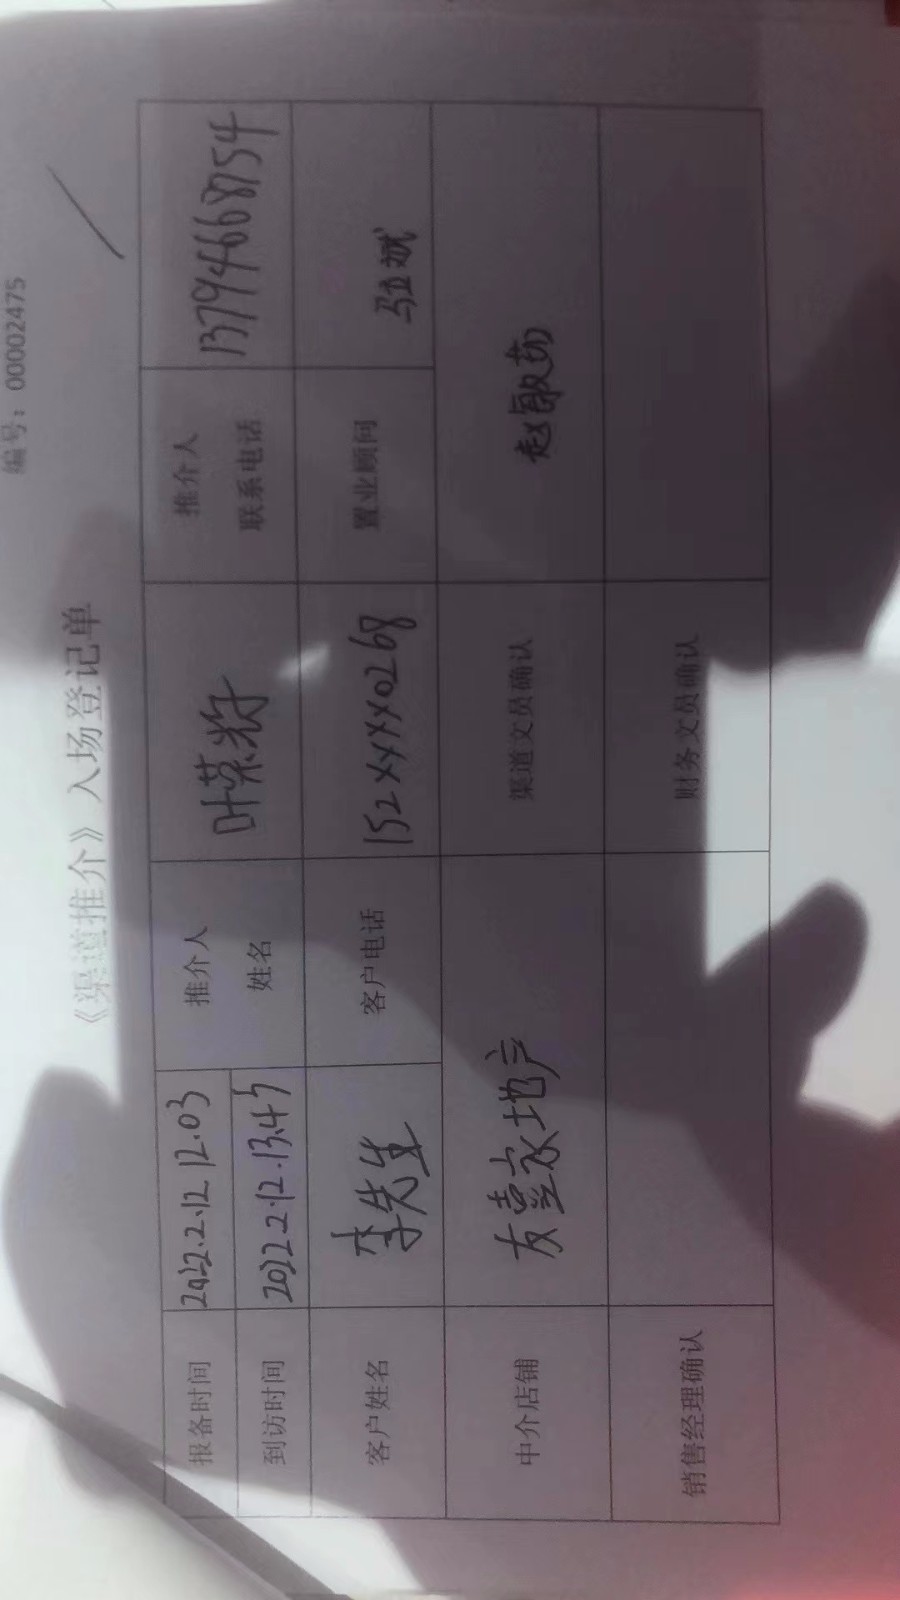 编号：00002475
《渠道推介》入场登记单
报备时间 2022.2.12 12.03 推介人姓名 叶荣 推介人联系电话 13794668754
到访时间 2022.2.12.13.47
客户姓名 李先生 客户电话 152xxxx0268 置业顾问 斌
中介店铺 友壹家地产 渠道文员确认 赵敏茹
销售经理确认 财务文员确认